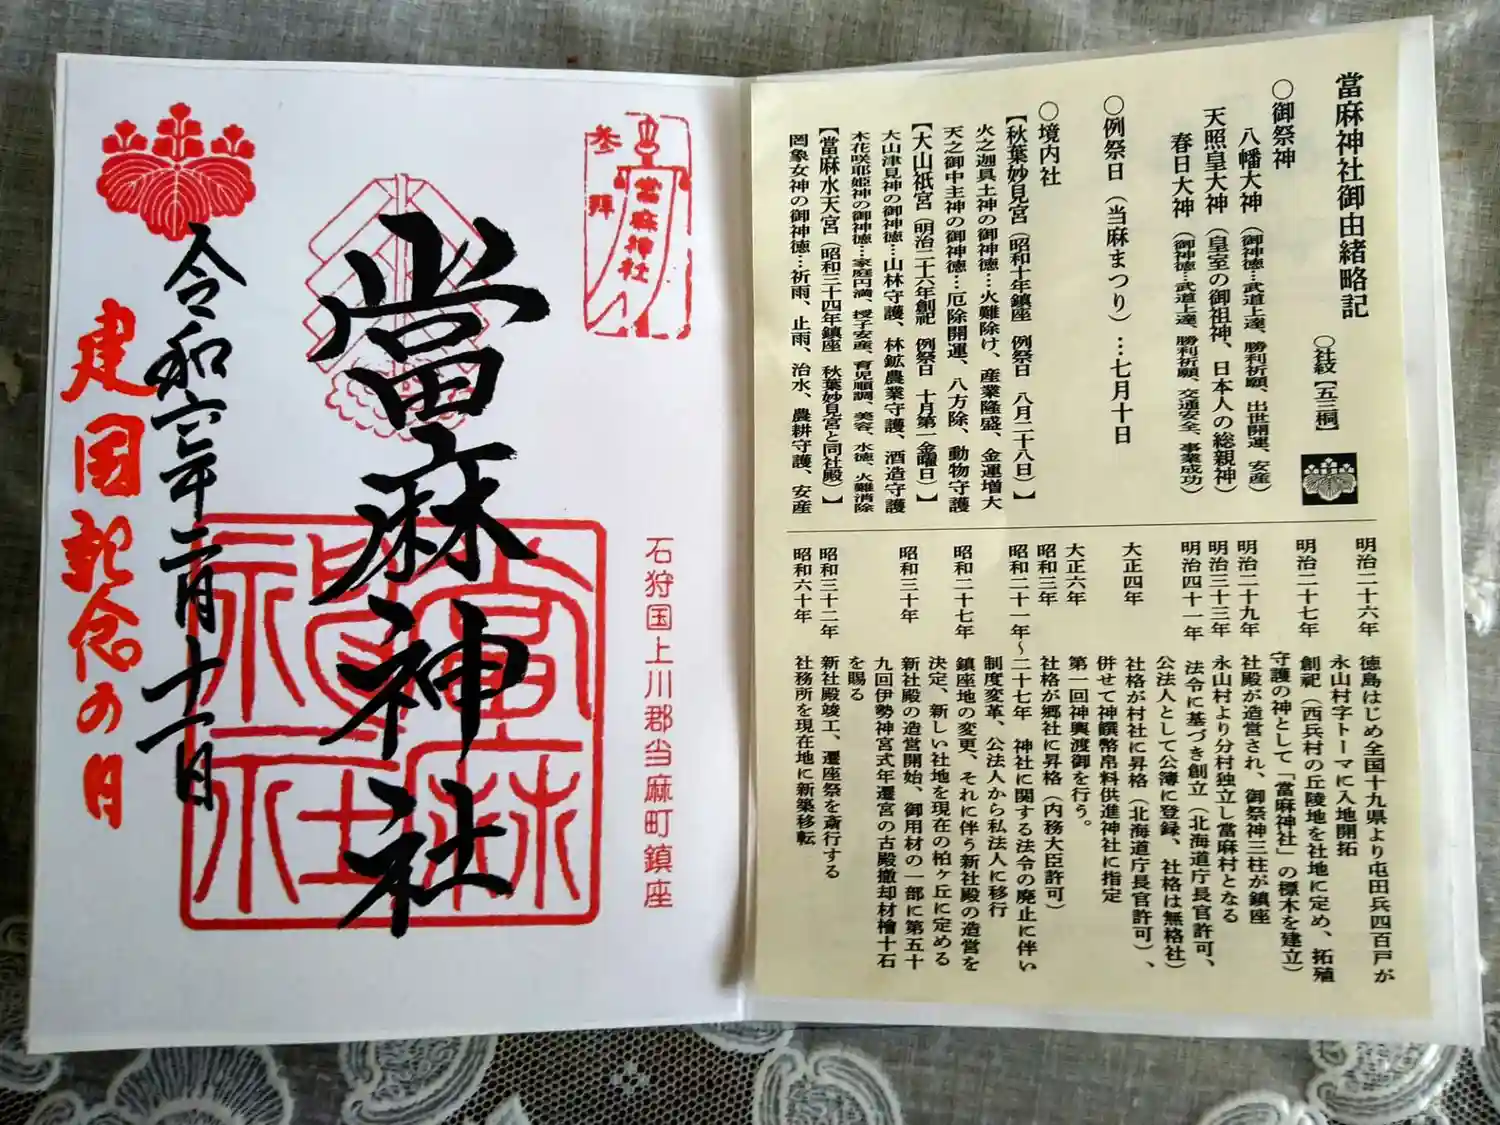 當麻神社御由緒略記
○社紋【五三桐】
○御祭神
八幡大神（御神徳…武道上達、勝利祈願、出世開運、安産）
天照皇大神（皇室の御祖神、日本人の総親神）
春日大神（御神徳…武道上達、勝利祈願、交通安全、事業成功）
○例祭日（当麻まつり）…七月十日
○境内社
【秋葉妙見宮（昭和十年鎮座 例祭日 八月二十八日）】
火之迦具土神の御神徳…火難除け、産業隆盛、金運増大
天之御中主神の御神徳…厄除開運、八方除、動物守護
【大山祇宮（明治二十六年創祀 例祭日 十月第一金曜日）】
大山津見神の御神徳…山林守護、林鉱農業守護、酒造守護
木花咲耶姫神の御神徳…家庭円満、授子安産、育児順調、美容、水徳、火難消除
【當麻水天宮（昭和三十四年鎮座 秋葉妙見宮と同社殿）】
罔象女神の御神徳…祈雨、止雨、治水、農耕守護、安産
明治二十六年 徳島はじめ全国十九県より屯田兵四百戸が
永山村字トーマに入地開拓
明治二十七年 創祀（西兵村の丘陵地を社地に定め、拓殖
守護の神として「當麻神社」の標木を建立）
明治二十九年 社殿が造営され、御祭神三柱が鎮座
明治三十三年 永山村より分村独立し當麻村となる
明治四十一年 法令に基づき創立（北海道庁長官許可、
公法人として公簿に登録、社格は無格社）
大正四年 社格が村社に昇格（北海道庁長官許可）、
併せて神饌幣帛料供進神社に指定
大正六年 第一回神輿渡御を行う。
昭和三年 社格が郷社に昇格（内務大臣許可）
昭和二十一年～二十七年 神社に関する法令の廃止に伴い
制度変革、公法人から私法人に移行
昭和二十七年 鎮座地の変更、それに伴う新社殿の造営を
決定、新しい社地を現在の柏ヶ丘に定める
昭和三十年 新社殿の造営開始、御用材の一部に第五十
九回伊勢神宮式年遷宮の古殿撤却材檜十石
を賜る
昭和三十二年 新社殿竣工、遷座祭を斎行する
昭和六十年 社務所を現在地に新築移転
参拝
當麻神社
石狩国上川郡当麻町鎮座
當麻神社
當麻神社
令和六年二月十一日
建国記念の日